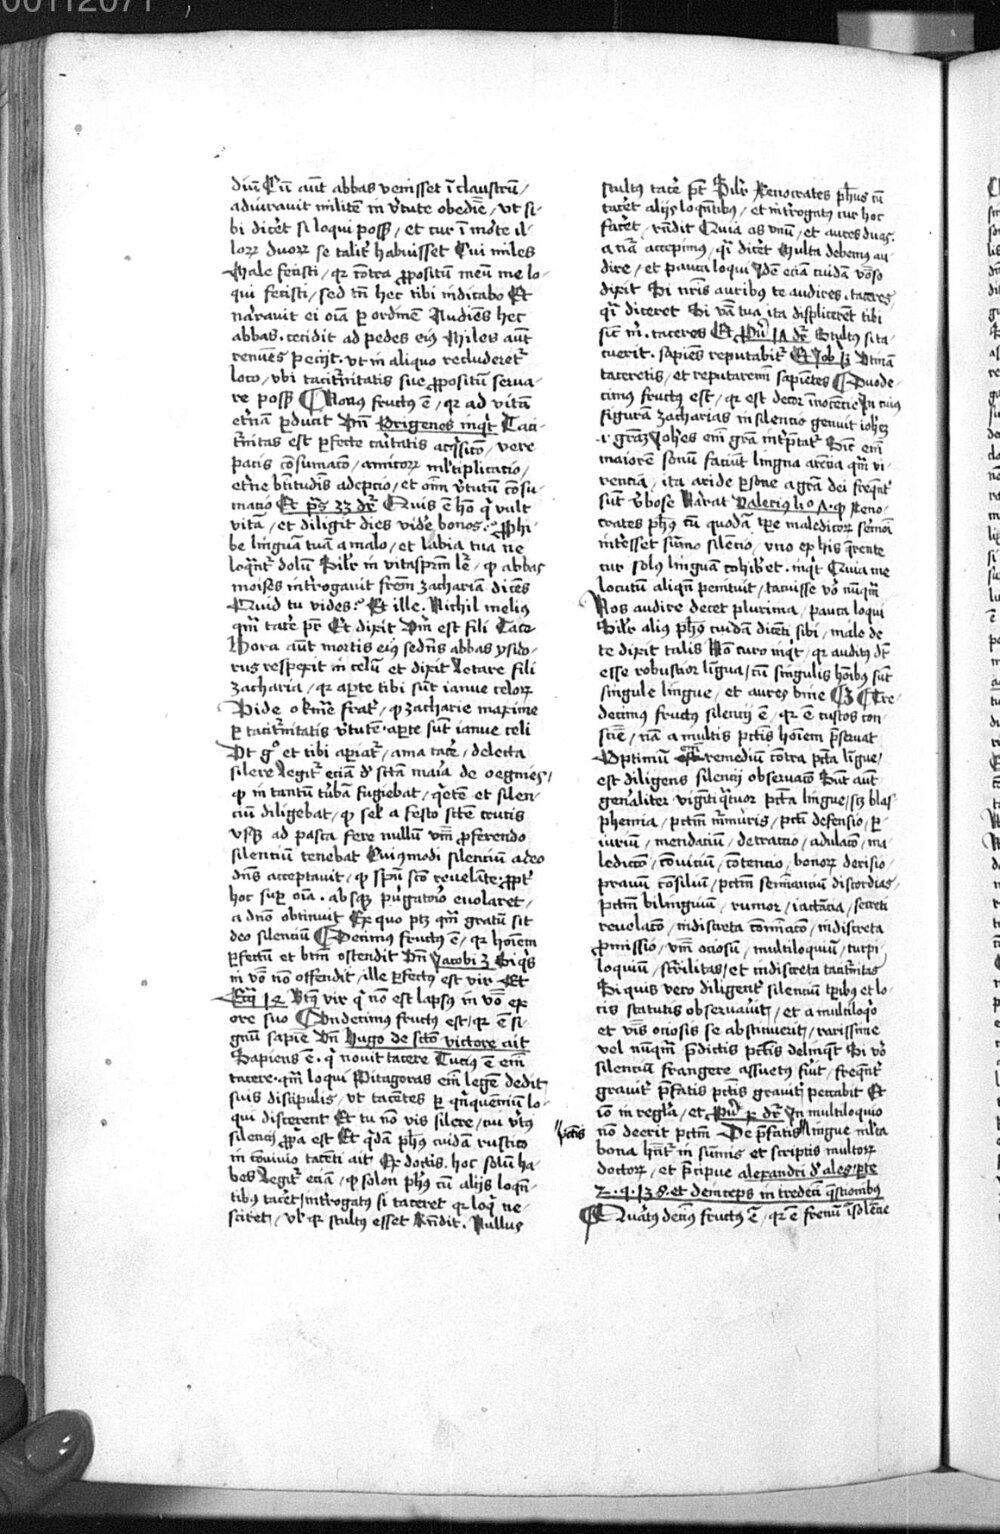 00112071
diu͞ Cu͞ aut͞ abbas venisset i͞ claustru͞ /
adiuravit milite͞ in v͛tute obedie͞ / vt si-
bi dicet͛ si loqui poss3 / et cur i͞ mo͛te il-
lorꝝ duorꝝ se talit͛ habuisset Cui miles
Male fecisti / qꝛ co͞tra ꝓpositu͞ meu͞ me lo-
qui fecisti / sed tn͞ hec tibi indicabo Et
na͛ravit ei oi͞a ꝑ ordine͞ Audie͞s hec
abbas . cecidit ad pedes eiꝰ Miles aut͞
renue͞s pecijt . vt in aliquo recluderet͛
loco / vbi tacit͛nitatis sue ꝓpositu͞ serva-
re poss3 Nonꝰ fructꝰ e͞ / qꝛ ad vita͞
et͛na͞ ꝑducit Vn͞ Origenes inqt͛ Taci-
t͛nitas est ꝑfecte ca͛itatis acq͛sico͞ / vere
pacis co͞sumaco͞ / amicorꝝ ml͛tiplicatio /
et͛ne bt͛itudis͞ adepcio / et oi͞m v͛tutu͞ co͞su-
matio Et ps͛ 33 dr͛ Quis e͞ ho͞ q͛ vult
vita͞ / et diligit dies vide͛ bonos .ꝰ ꝓhi-
be lingua͞ tua͞ a malo / et labia tua ne
loqnt͛ dolu͞ Silr͛ in vitaspr͛m le͛ / ꝙ abbas
moises int͛rogavit fre͛m zacharia͞ dice͞s
Quid tu vides .ꝰ Et ille . Nichil melius
qm͛ tace͛ pr͛ Et dixit Vm͞ est fili Tace
Hora aut͞ mortis eiꝰ sedn͞s abbas ysido-
rus respexit in celu͞ et dixit Letare fili
zacharia / qꝛ aꝑte tibi su͞t ianue celorꝝ
Vide o kme͞ frat͛ / ꝙ zacharie maxime
ꝑ tacit͛nitatis v͛tute͞ . aꝑte su͞t ianue celi
Vt gͦ et tibi apiat͛ / ama tace͛ / delecta
silere Legit͛ ecia͞ d͛ sc͞ta͞ maria de oegnies /
ꝙ in tantu͞ tu͛ba͞ fugiebat / q͛ete͞ et silen-
ciu͞ diligebat / ꝙ sel͛ a festo sc͞te crucis
vsꝙ ad pasca fere nullu͞ vm͞ ꝓferendo
silenciu͞ tenebat Cuiꝰmodi silenciu͞ adeo
dn͞s acceptavit / ꝙ spu͞ sc͞o revela͞te . ꝓpt͛
hoc suꝑ oi͞a . absꝙ pu͛gatorio evolaret /
a dn͞o obtinuit Ex quo pt3 qm͛ gratu͞ sit
deo silenciu͞ Decimꝰ fructꝰ e͞ / qꝛ hoi͞em
ꝑfectu͞ et btm͞ ostendit Vn͞ Jacobi 3 Si qs͛
in vo͞ no͞ offendit / ille ꝑfectꝰ est vir Et
Ecci͞ 14 Btꝰ vir q͛ no͞ est lapsꝰ in vo͞ ex
ore suo Vndecimꝰ fructꝰ est / qꝛ e͞ si-
gnu͞ sapie͞ Vn͞ Hugo de sc͞to victore ait
Sapiens e͞ . q͛ novit tacere Tuciꝰ e͞ em͞
tacere . qm͛ loqui Pitagoras em͞ lege͞ dedit
suis discipulis / vt tace͞tes ꝑ qn͛que͞niu͞ lo-
qui discerent Et tu no͞ vis silere / cui v͛tꝰ
silencij ꝓpa est Et q͛da͞ ph͛us cuida͞ rustico
in co͞vivio tace͞ti ait Ex doctis . hoc solu͞ ha-
bes Legit͛ ecia͞ / ꝙ solon ph͛us cu͞ alijs loqn͛-
tibꝰ tacet͛ / int͛rogatꝰ si taceret qꝛ loq͛ ne-
sciret / vl͛ qꝛ stultꝰ esset Rn͞dit . Nullus
stultꝰ tace͛ pt͛ Silr͛ Xenocrates ph͛us cu͞
tacet͛ alijs loqn͛tibꝰ / et int͛rogatꝰ cur hoc
facet͛ / rn͞dit Quia os vnu͞ / et aures duas .
a na͛ accepimꝰ / q͛i dicet͛ Multa debemꝰ au-
dire / et pauca loqui Ide͞ ecia͞ cuida͞ v͛boso
dixit Si nris͞ auribꝰ te audires . taceres
q͛i diceret Si va͞ tua ita displicere͞t tibi
sic͛ m͛ . taceres Et Pu͛ 17 dr͛ Stultꝰ si ta-
cuerit . sapie͞s reputabit͛ Et Job 13 Vtina͞
taceretis / et reputaremi͞ sapie͞tes Duode-
cimꝰ fructꝰ est / qꝛ est decor i͞noce͞cie In cuiꝰ
figura͞ zacharias in silencio genuit ioh͛ez
.i. gra͞3 Joh͛es em͞ gra͞ int͛ꝑtat͛ Sic͛ em͞
maiore͞ sonu͞ faciu͞t lingua are͞cia qm͛ vi-
rencia / ita aride ꝑsone a gra͞ dei freqn͛t͛
su͞t v͛bose Narrat Valeriꝰ liͦ 7 . ꝙ Xeno-
crates ph͛us cu͞ quoda͞ tꝑe maledicorꝝ s͛moi͞
int͛esset su͞mo silencio / vno ex his q͛rente
cur solꝰ lingua͞ cohibet͛ . inqt͛ Quia me
locutu͞ aliqn͞ penituit / tacuisse vo͛ nu͞qm͛
Nos audire decet plurima / pauca loqui
Silr͛ aliꝰ ph͛us cuida͞ dice͞ti sibi / male de
te dixit talis No͞ curo inqt͛ / qꝛ auditꝰ dt͛
esse robustior li͞gua / cu͞ singulis ho͞ibꝰ su͞t
singule lingue / et aures bine Tre-
decimꝰ fructꝰ silencij e͞ / qꝛ e͞ custos con-
scie͞ / na͞ a multis pct͞is hoi͞em p͛servat
Optimu͞ remediu͞ co͞tra pct͞a li͞gue /
est diligens silencij observaco͞ Su͞t aut͞
gen͛aliter vigi͞ti q͛tuor pct͞a lingue / s3 blas-
phemia / pctm͞ mu͛muris / pcti͞ defensio / ꝑ-
iuriu͞ / mendaciu͞ / detractio / adulaco͞ / ma-
ledicco͞ / co͞viciu͞ / co͞tencio / bonorꝝ derisio
pravu͞ co͞siliu͞ / pctm͞ semi͞anciu͞ discordias /
pctm͞ bilinguiu͞ / rumor / iacta͞cia / secreti
revelaco͞ / indiscreta co͞minaco͞ / indiscreta
ꝓmissio / vm͞ ociosu͞ / multiloquiu͞ / turpi-
loquiu͞ / scu͛rilitas / et indiscreta tacit͛nitas
Si quis vero diligent͛ silenciu͞ tꝑibꝰ et lo-
cis statutis observav͛it / et a multiloq͛o
et v͛bis ociosis se abstinuerit / rarissime
vel nu͞qm͛ p͛dictis pct͞is delinqt͛ Si vo͛
silenciu͞ frangere assuetꝰ fu͛it / freqn͛t͛
gravit͛ p͛fatis pct͞is gravit͛ peccabit Et
io͞ in regl͛a / et Pu͛ x dr͛ In multiloquio
no͞ deerit pctm͞ De p͛fatis lingue ml͛ta
pct͞is
bona hn͛t͛ in su͞mis et scriptis multorꝝ
doctorꝝ / et p͛cipue alexandri d͛ ales . ꝑte
2 . q . 138 . et deinceps in tredeci͞ q͛stionibus
Quartꝰ decimꝰ fructꝰ e͞ / qꝛ e͞ frenu͞ i͞solencie